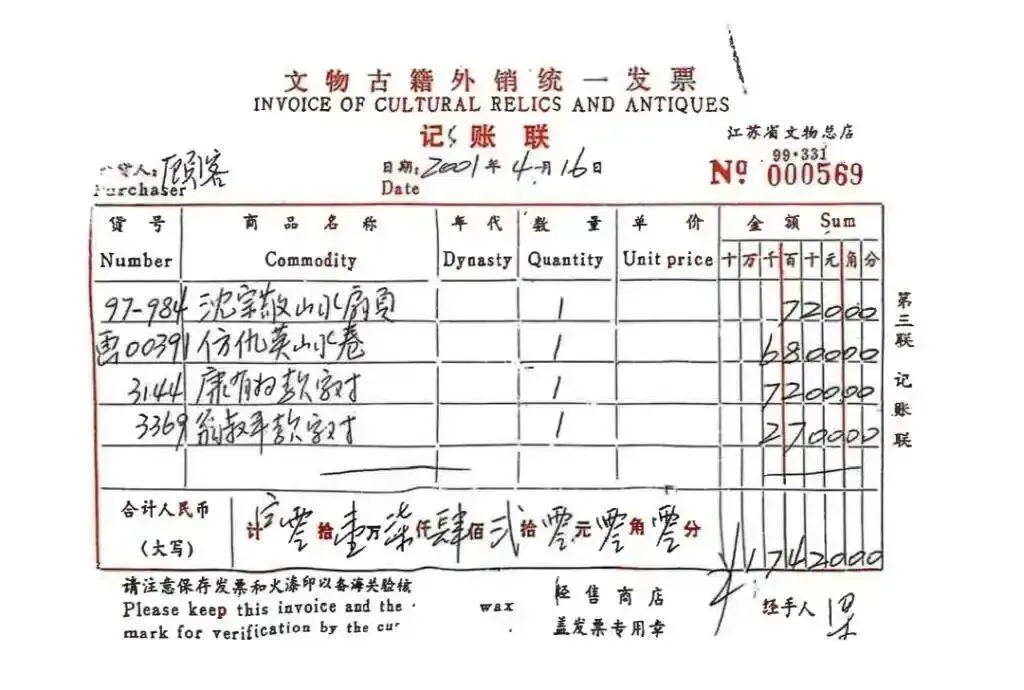 文物古籍外销统一发票
INVOICE OF CULTURAL RELICS AND ANTIQUES
记账联
江苏省文物总店
99·331
货人: 顾客
Purchaser
日期: 2001年4月16日
Date
Nº 000569
货号 商品名称 年代 数量 单价 金额 Sum
Number Commodity Dynasty Quantity Unit price 十万千百十元角分
97-984 沈宗敬山水扇页 1 72000
画00391 仿仇英山水卷 1 680000
3144 康有为款字对 1 720000
3369 翁叔平款字对 1 270000
合计人民币
(大写)
计 零拾壹万柒仟肆佰贰拾零元零角零分 ¥1742000
第三联 记账联
请注意保存发票和火漆印以备海关验核
Please keep this invoice and the wax
mark for verification by the cu
经售商店
盖发票专用章
经手人